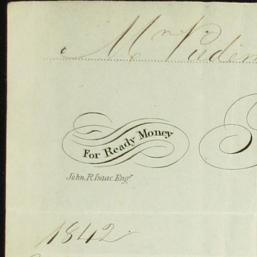 Mr
For Ready Money
John. R. Isaac. Engr
1842